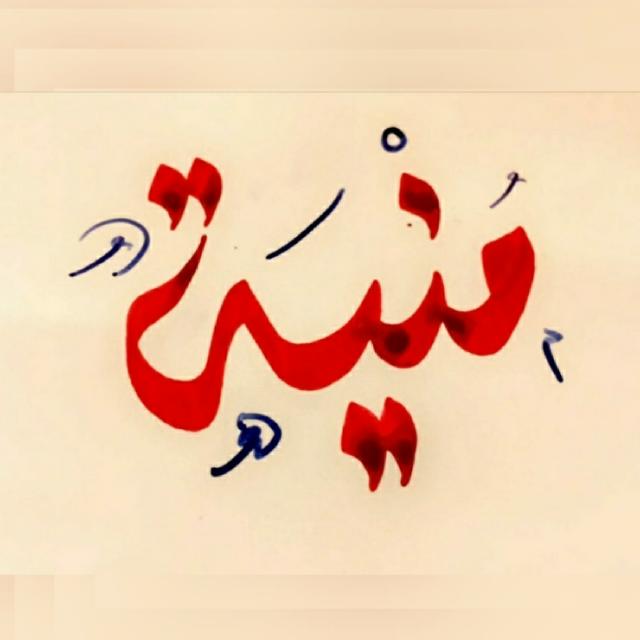 مُنْيَة